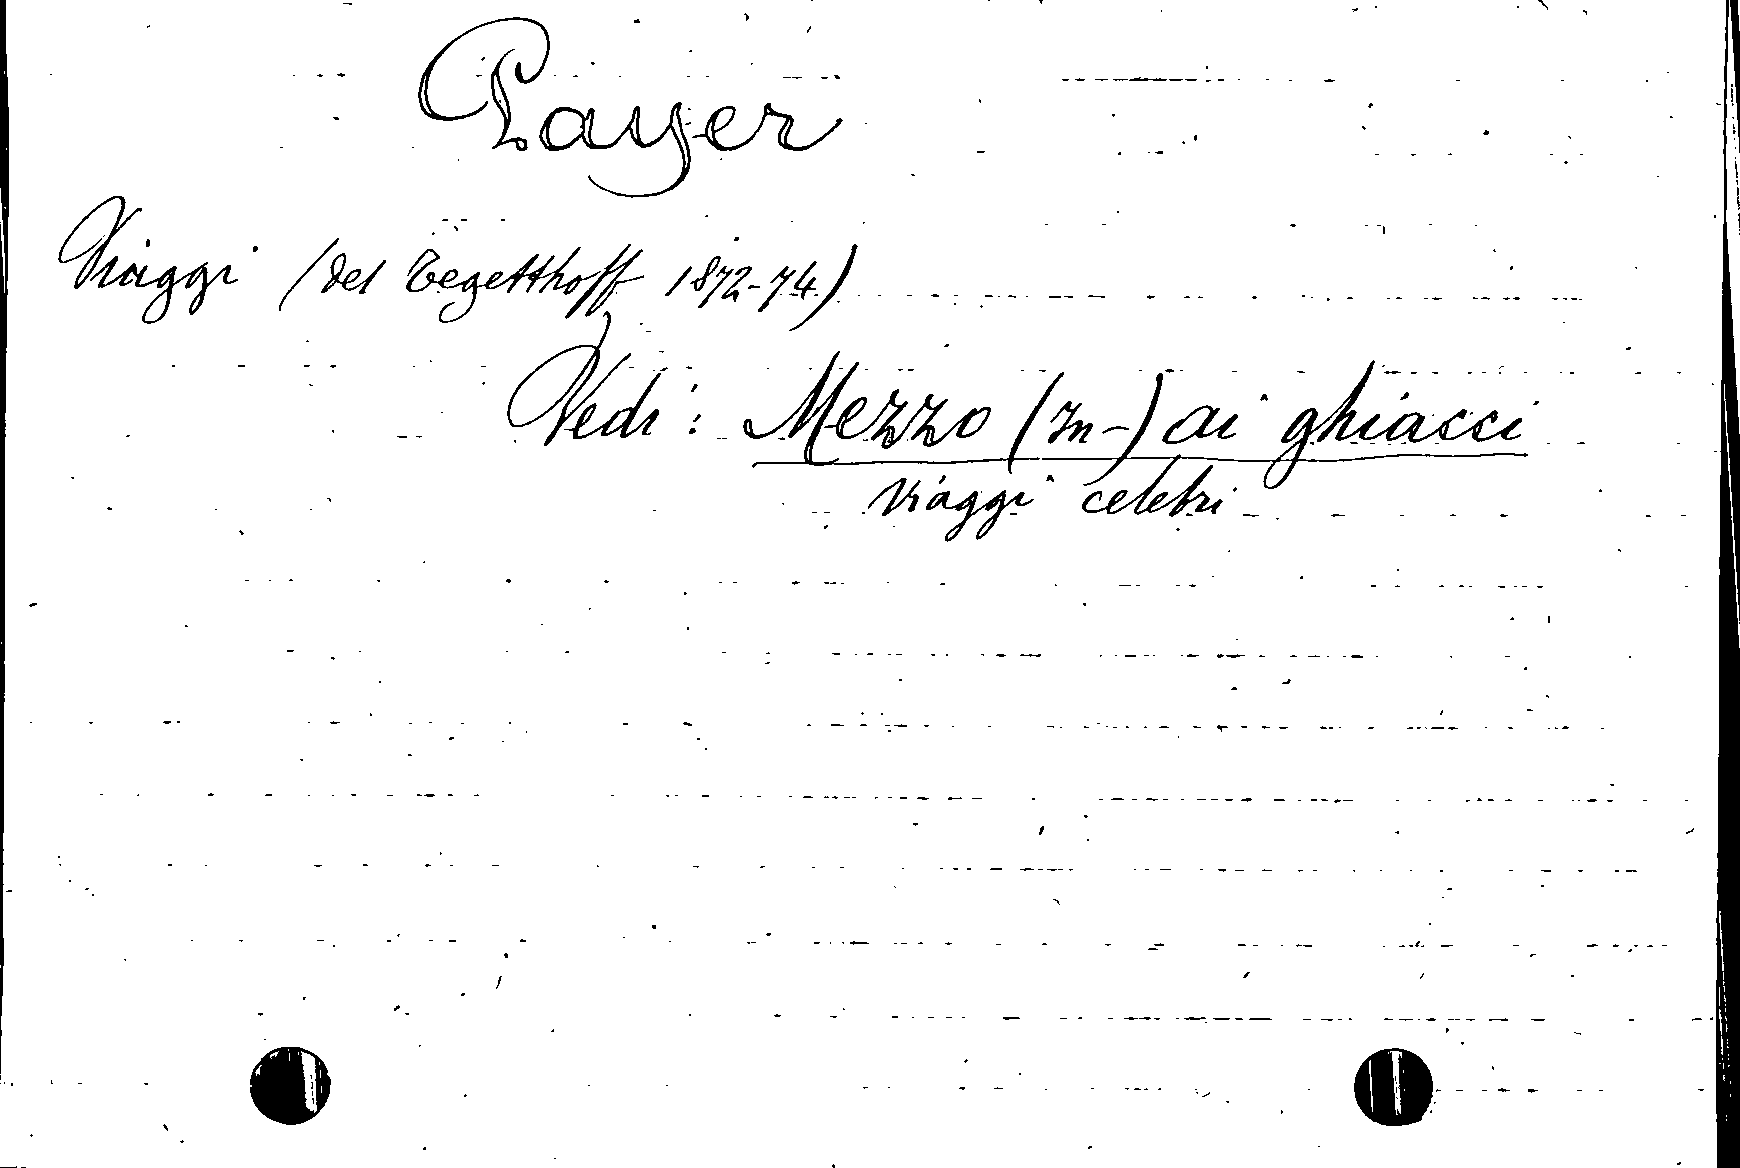 Payer
Viaggi (del Tegetthoff 1872-74)
Vedi: Mezzo (In-) ai ghiacci
Viaggi celebri